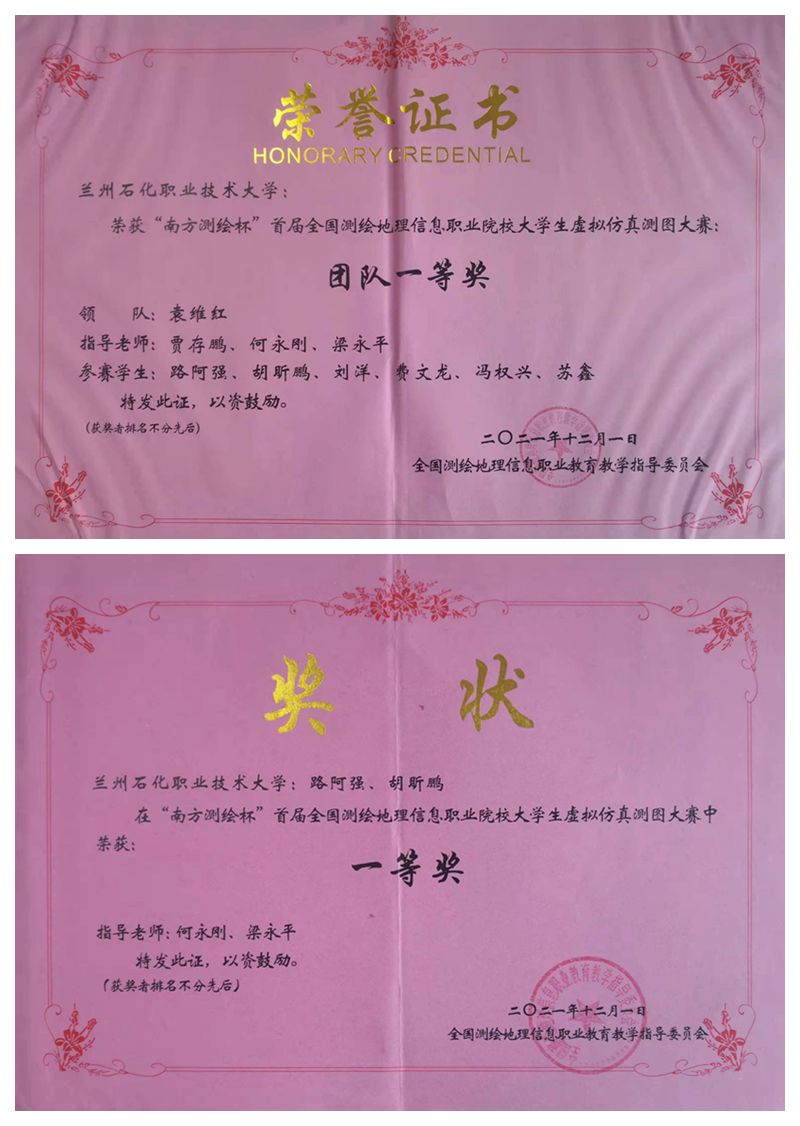 荣誉证书
HONORARY CREDENTIAL
兰州石化职业技术大学：
荣获“南方测绘杯”首届全国测绘地理信息职业院校大学生虚拟仿真测图大赛：
团队一等奖
领 队：袁维红
指导老师：贾存鹏、何永刚、梁永平
参赛学生：路阿强、胡昕鹏、刘洋、费文龙、冯权兴、苏鑫
特发此证，以资鼓励。
（获奖者排名不分先后）
二〇二一年十二月一日
全国测绘地理信息职业教育教学指导委员会
奖 状
兰州石化职业技术大学：路阿强、胡昕鹏
在“南方测绘杯”首届全国测绘地理信息职业院校大学生虚拟仿真测图大赛中
荣获：
一等奖
指导老师：何永刚、梁永平
特发此证，以资鼓励。
（获奖者排名不分先后）
二〇二一年十二月一日
全国测绘地理信息职业教育教学指导委员会